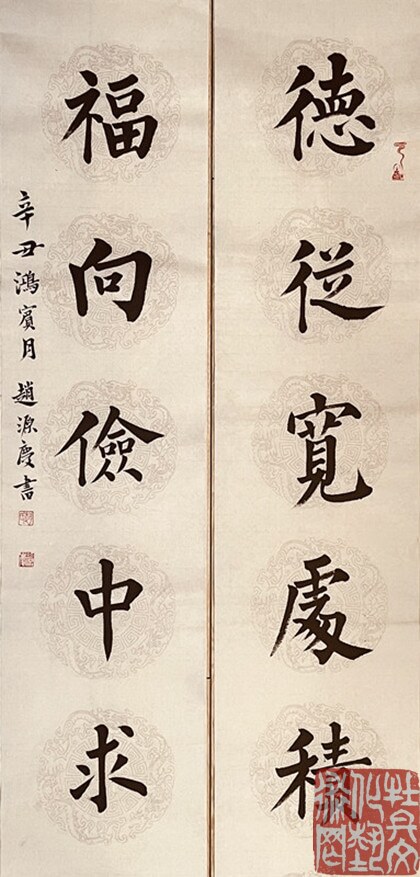 德從寬處積
福向儉中求
辛丑鴻賓月 趙源慶書